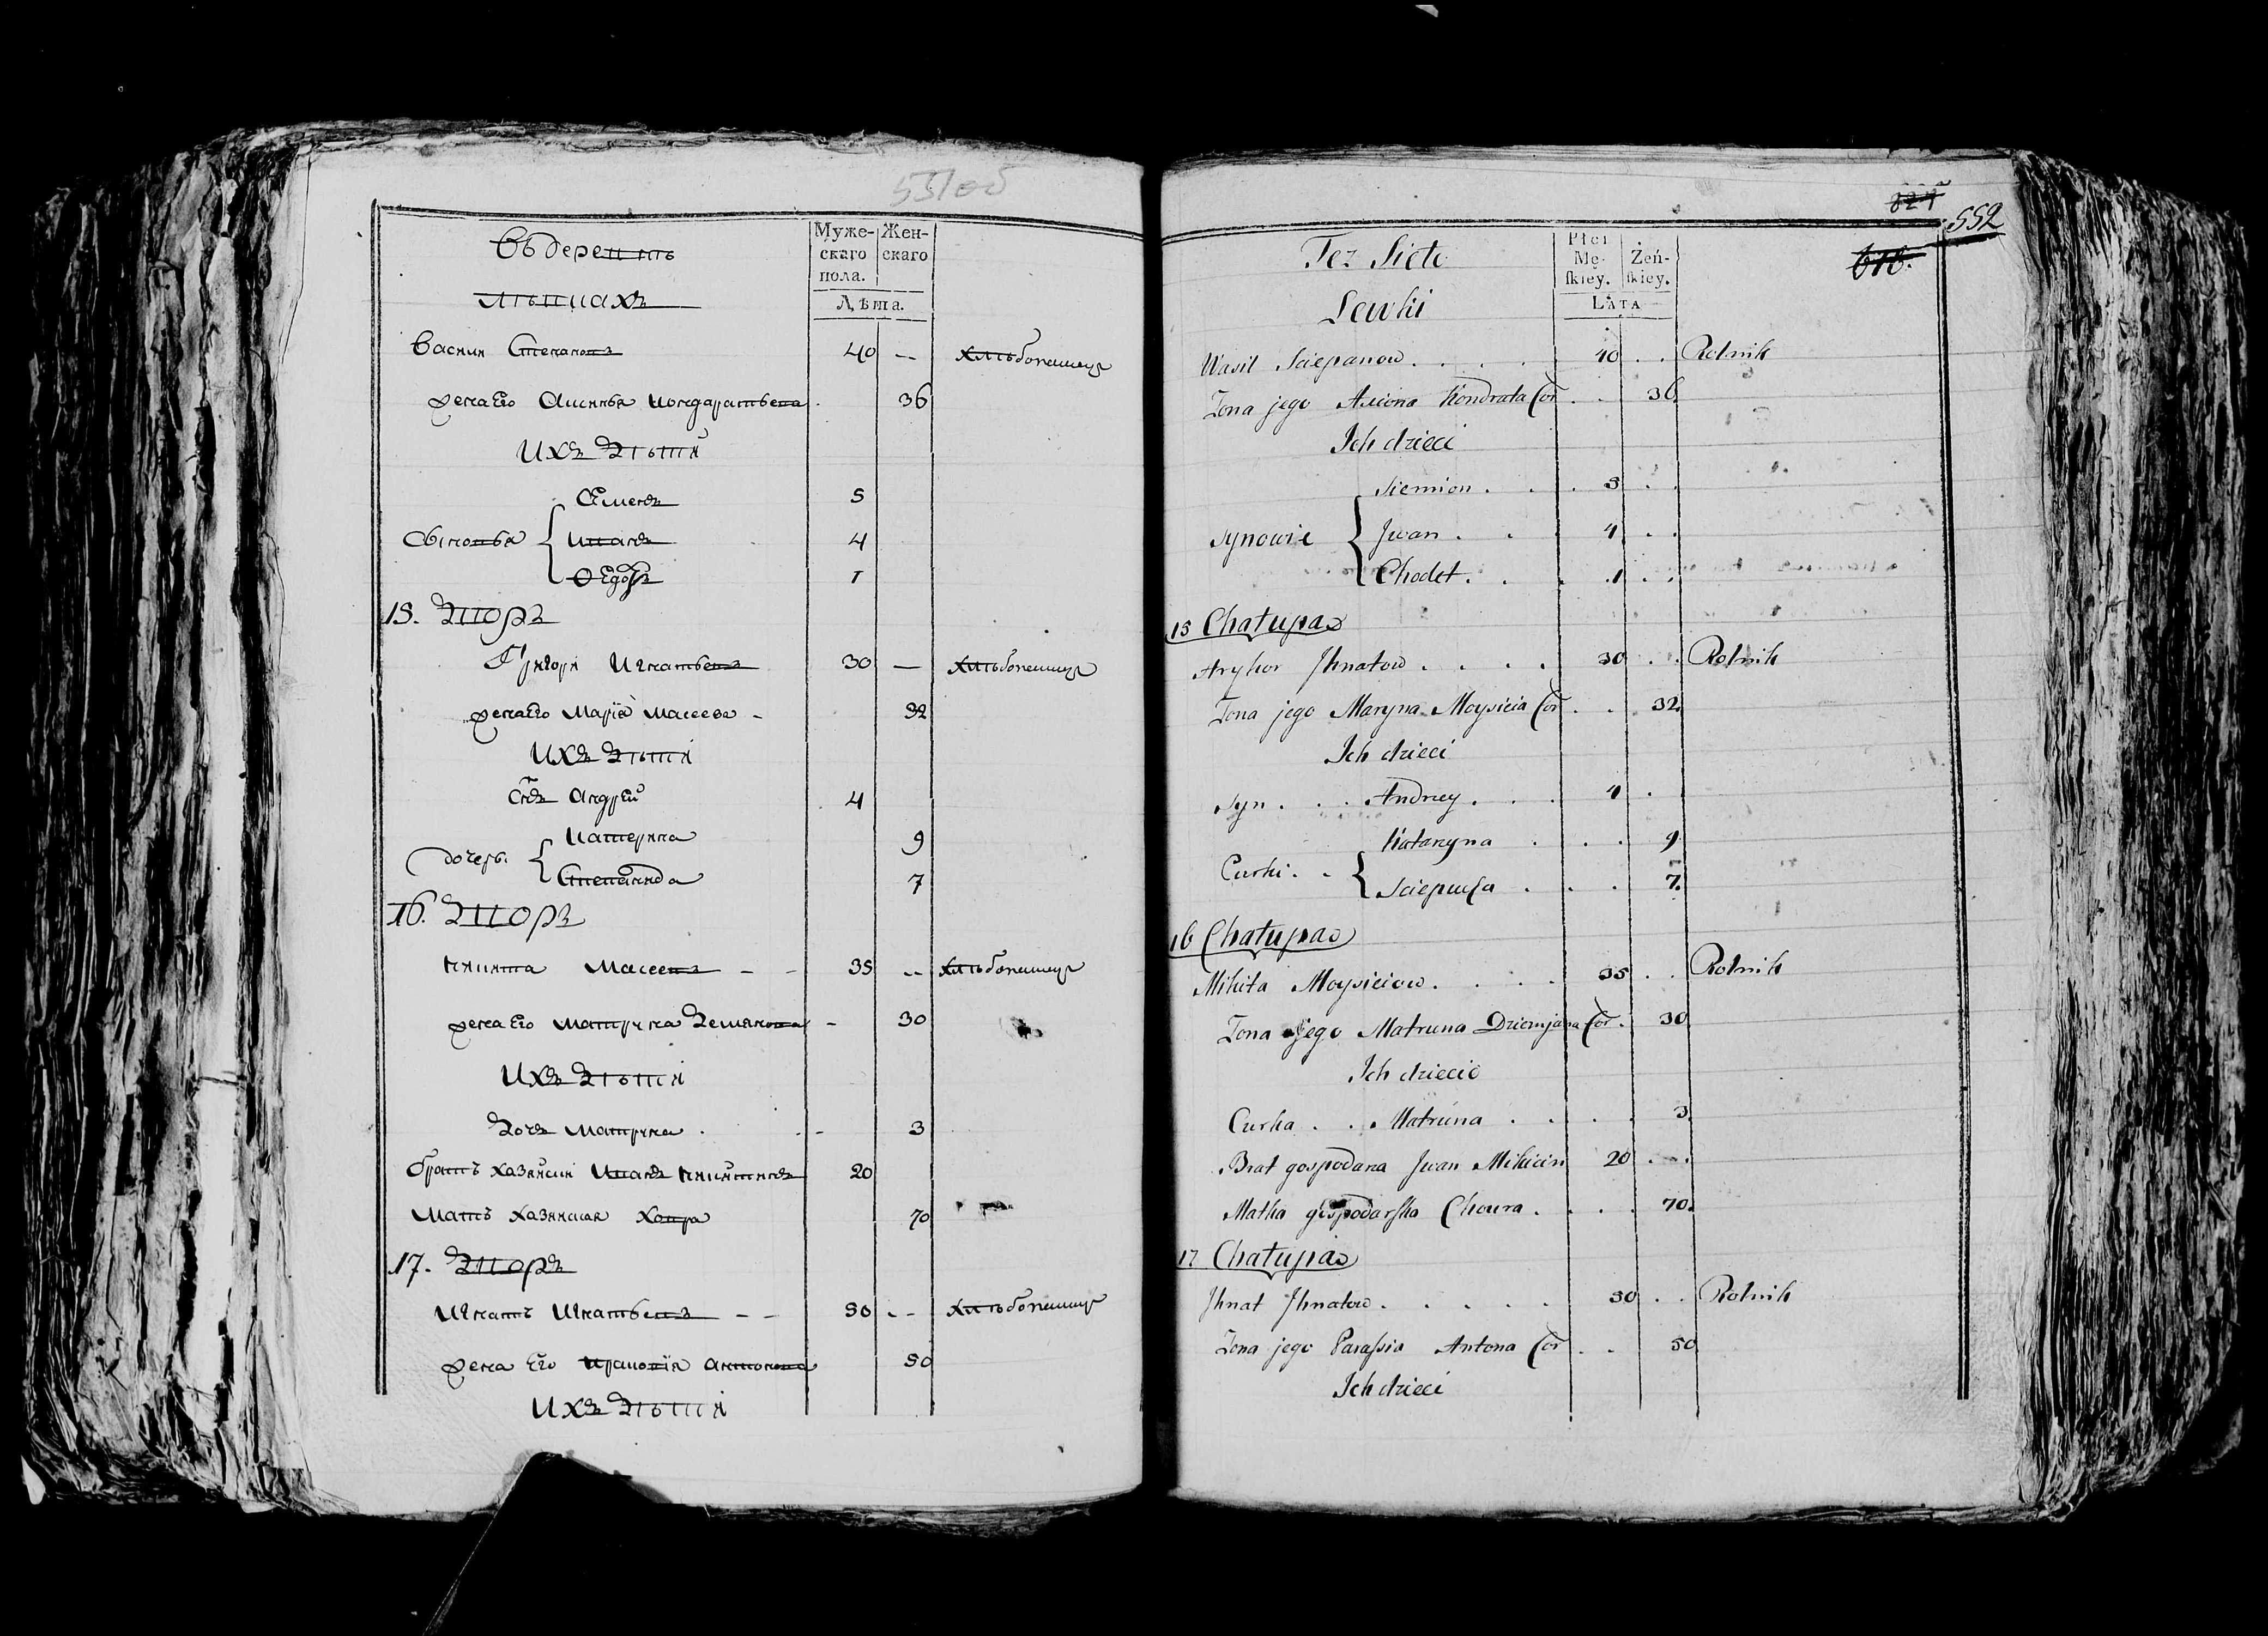 551об
Въ деревнѣ
Лѣвкахъ
Муже-
скаго
пола.
Жен-
скаго
Лѣта.
Василй Степановъ 40 — Хлѣбопашецъ
жена Его Аксинья Кондратьева 36
Ихъ Дѣти
Сыновья
Семенъ 5
Иванъ 4
Федоръ 1
15. Дворъ
Григори Игнатьевъ 30 — Хлѣбопашецъ
жена Его Марїа Масеева 32
Ихъ Дѣти
Снъ Андрей 4
дочерь
Катерина 9
Степанида 7
16. Дворъ
Никита Масеевъ 35 — Хлѣбопашецъ
жена Его Матруна Демянова 30
Ихъ Дѣти
Дочь Матруна 3
братъ хазяйскй Иванъ Никитинъ 20
Мать хазяиская Ховра 70
17. Дворъ
Игнатъ Игнатьевъ 50 — Хлѣбопашецъ
жена Его Антонова 50
Ихъ Дѣти
552
Tez Sioło
Lewki
Płci
Mę-
skiey.
Żeń-
skiey.
LATA
Wasil Sciepanow 40 Rolnik
Zona jego Axiona Kondrata Cor 36
Ich dzieci
Synowie
Siemion 5
Jwan 4
Chodor 1
15 Chałupa
Aryhor Jhnatow 30 Rolnik
Zona jego Maryna Moysieia Cor 32
Ich dzieci
Syn Andrzey 4
Curki
Katarzyna 9
7
16 Chałupa
Mikita Moysieiow 35 Rolnik
Zona jego Matruna Dziemjana Cor 30
Ich dziecie
Curka Matruna 3
Brat gospodarza Jwan Mikicin 20
Matka gospodarska Choura 70
17 Chałupa
Jhnat Jhnatow 50 Rolnik
Zona jego Parasia Antona Cor 50
Ich dzieci